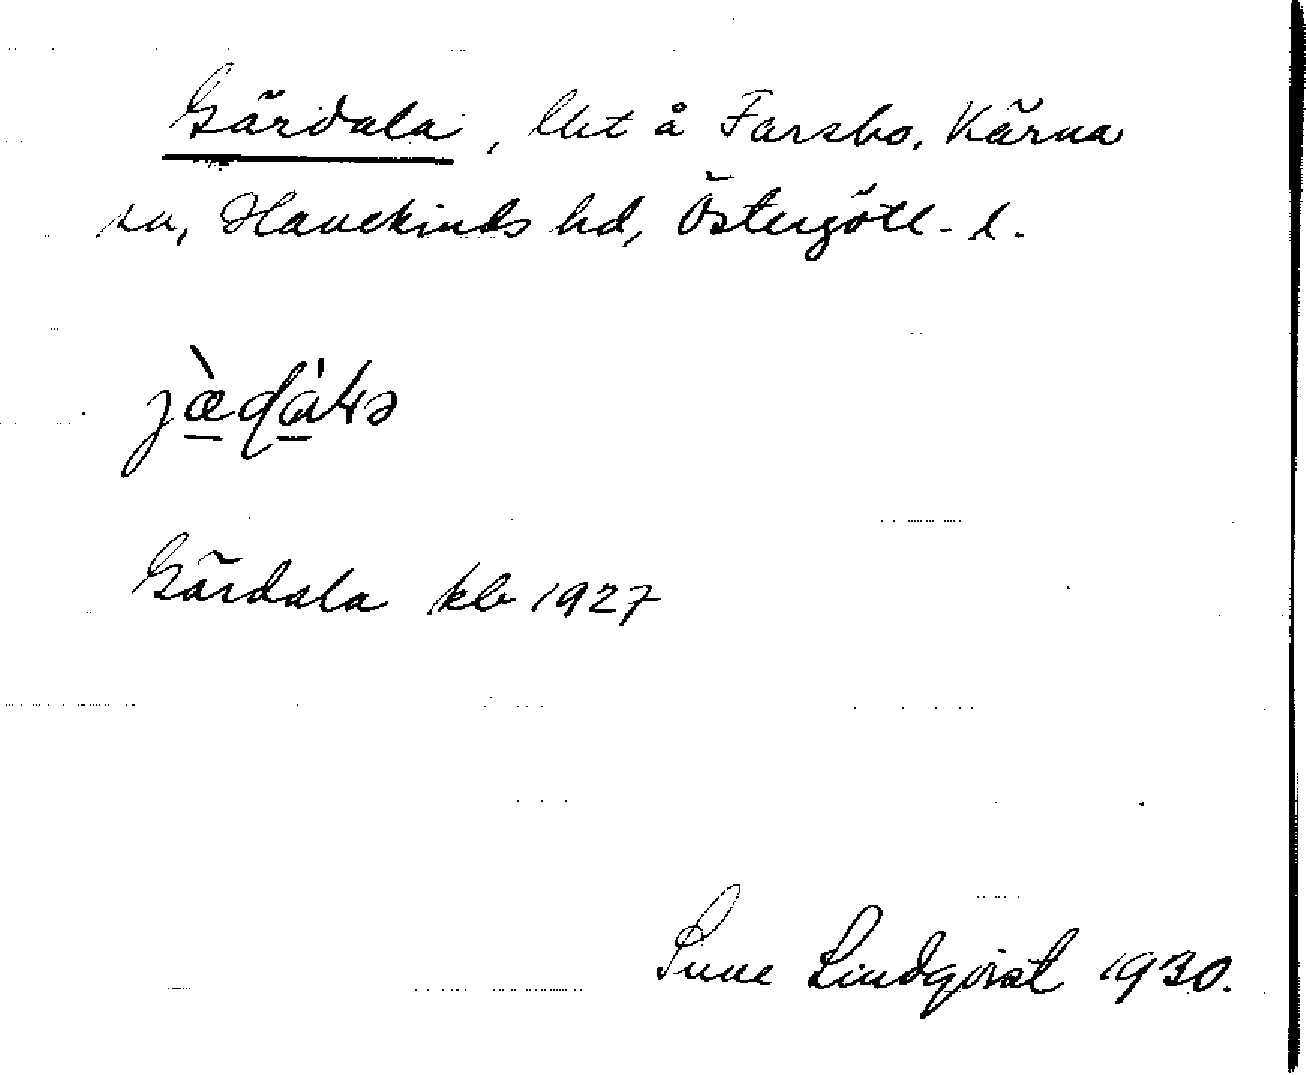 Gärdala, lht å Farsbo, Kärna
sn, Hanekinds hd, Östergötl. l.
Gärdala kb 1927
Sune Lindqvist 1930.